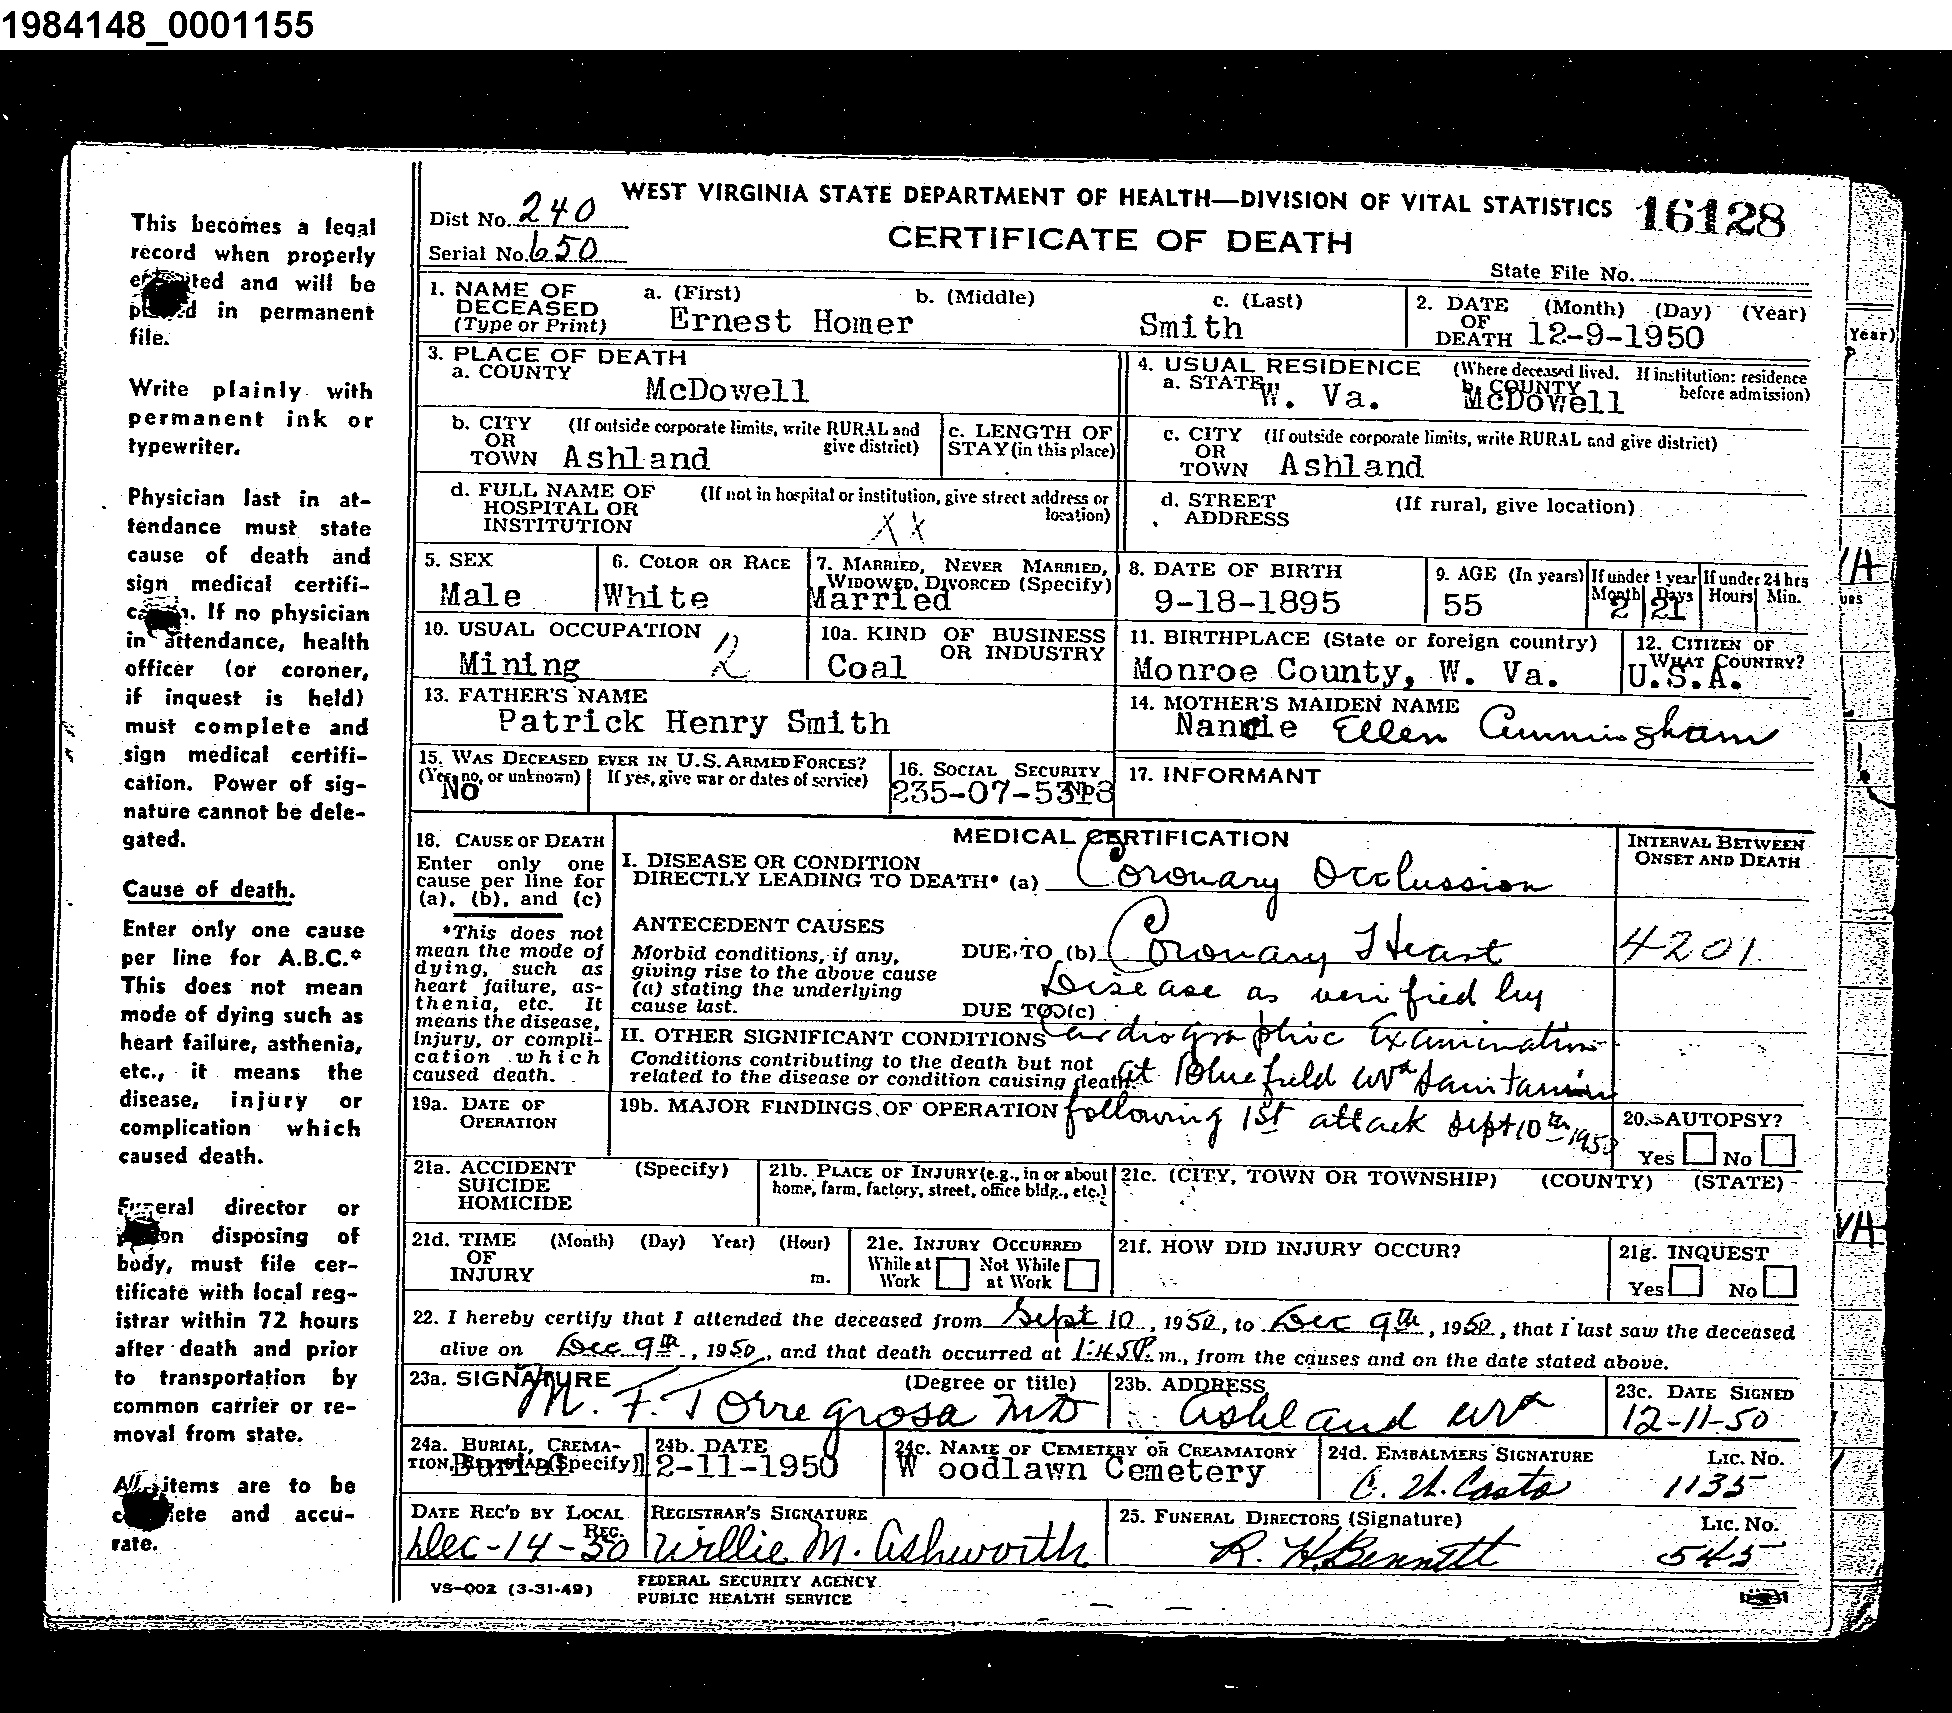 1984148_0001155
This becomes a legal
record when properly
and will be
in permanent
file.
Write plainly with
permanent ink or
typewriter.
Physician last in at-
tendance must state
cause of death and
sign medical certifi-
If no physician
in attendance, health
officer (or coroner,
if inquest is held)
must complete and
sign medical certifi-
cation. Power of sig-
nature cannot be dele-
gated.
Cause of death.
Enter only one cause
per line for A.B.C.*
This does not mean
mode of dying such as
heart failure, asthenia,
etc., it means the
disease, injury or
complication which
caused death.
Funeral director or
disposing of
body, must file cer-
tificate with local reg-
istrar within 72 hours
after death and prior
to transportation by
common carrier or re-
moval from state.
All items are to be
and accu-
rate.
WEST VIRGINIA STATE DEPARTMENT OF HEALTH—DIVISION OF VITAL STATISTICS 16128
Dist No. 240
CERTIFICATE OF DEATH
Serial No. 650
State File No.
1. NAME OF DECEASED (Type or Print) a. (First) b. (Middle) c. (Last)
Ernest Homer Smith
2. DATE OF DEATH (Month) (Day) (Year)
12-9-1950
3. PLACE OF DEATH
a. COUNTY
McDowell
4. USUAL RESIDENCE (Where deceased lived. If institution: residence before admission)
a. STATE W. Va. b. COUNTY McDowell
b. CITY OR TOWN (If outside corporate limits, write RURAL and give district)
Ashland
c. LENGTH OF STAY (in this place)
c. CITY OR TOWN (If outside corporate limits, write RURAL and give district)
Ashland
d. FULL NAME OF HOSPITAL OR INSTITUTION (If not in hospital or institution, give street address or location)
XX
d. STREET ADDRESS (If rural, give location)
5. SEX
Male
6. COLOR OR RACE
White
7. MARRIED, NEVER MARRIED, WIDOWED, DIVORCED (Specify)
Married
8. DATE OF BIRTH
9-18-1895
9. AGE (In years) If under 1 year Month Days If under 24 hrs Hours Min.
55 2 21
10. USUAL OCCUPATION
Mining
10a. KIND OF BUSINESS OR INDUSTRY
Coal
11. BIRTHPLACE (State or foreign country)
Monroe County, W. Va.
12. CITIZEN OF WHAT COUNTRY?
U.S.A.
13. FATHER'S NAME
Patrick Henry Smith
14. MOTHER'S MAIDEN NAME
Nannie Ellen Cunningham
15. WAS DECEASED EVER IN U.S. ARMED FORCES?
(Yes, no, or unknown) If yes, give war or dates of service)
No
16. SOCIAL SECURITY No.
17. INFORMANT
18. CAUSE OF DEATH
Enter only one
cause per line for
(a), (b), and (c)
*This does not
mean the mode of
dying, such as
heart failure, as-
thenia, etc. It
means the disease,
injury, or compli-
cation which
caused death.
MEDICAL CERTIFICATION
INTERVAL BETWEEN ONSET AND DEATH
I. DISEASE OR CONDITION
DIRECTLY LEADING TO DEATH* (a) Coronary Occlussion
ANTECEDENT CAUSES
Morbid conditions, if any,
giving rise to the above cause
(a) stating the underlying
cause last.
DUE TO (b) Coronary Heart
4201
Disease as verified by
DUE TO (c)
II. OTHER SIGNIFICANT CONDITIONS Cardiographic Examination
Conditions contributing to the death but not
related to the disease or condition causing death. at Bluefield WVa Sanitarium
19a. DATE OF OPERATION
19b. MAJOR FINDINGS OF OPERATION following 1st attack Sept 10th 1950
20. AUTOPSY?
Yes No
21a. ACCIDENT SUICIDE HOMICIDE (Specify)
21b. PLACE OF INJURY (e.g., in or about home, farm, factory, street, office bldg., etc.)
21c. (CITY, TOWN OR TOWNSHIP) (COUNTY) (STATE)
21d. TIME OF INJURY (Month) (Day) Year) (Hour) m.
21e. INJURY OCCURRED
While at Work Not While at Work
21f. HOW DID INJURY OCCUR?
21g. INQUEST
Yes No
22. I hereby certify that I attended the deceased from Sept 10, 1950, to Dec 9th, 1950, that I last saw the deceased
alive on Dec 9th, 1950, and that death occurred at 1:45P. m., from the causes and on the date stated above.
23a. SIGNATURE (Degree or title)
M. F. Torregrosa MD
23b. ADDRESS
Ashland WVa
23c. DATE SIGNED
12-11-50
24a. BURIAL, CREMATION, REMOVAL (Specify)
Burial
24b. DATE
12-11-1950
24c. NAME OF CEMETERY OR CREAMATORY
W oodlawn Cemetery
24d. EMBALMERS SIGNATURE LIC. NO.
C. H. Casto 1135
DATE REC'D BY LOCAL REG.
Dec-14-50
REGISTRAR'S SIGNATURE
Willie M. Ashworth
25. FUNERAL DIRECTORS (Signature) LIC. NO.
R. H. Bennett 545
VS-002 (3-31-49)
FEDERAL SECURITY AGENCY
PUBLIC HEALTH SERVICE
Year)
VA